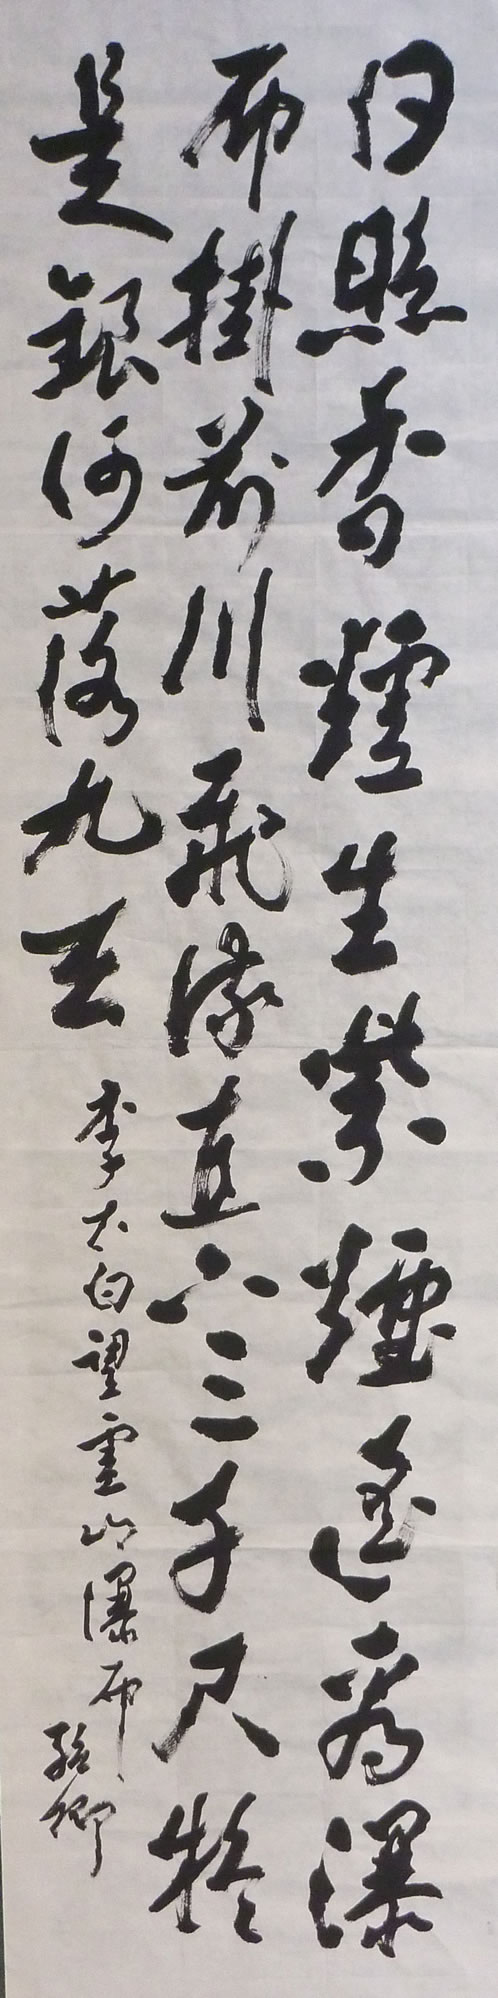 日照香爐生紫煙遙看瀑
布掛前川飛流直下三千尺疑
是銀河落九天
李太白望廬山瀑布